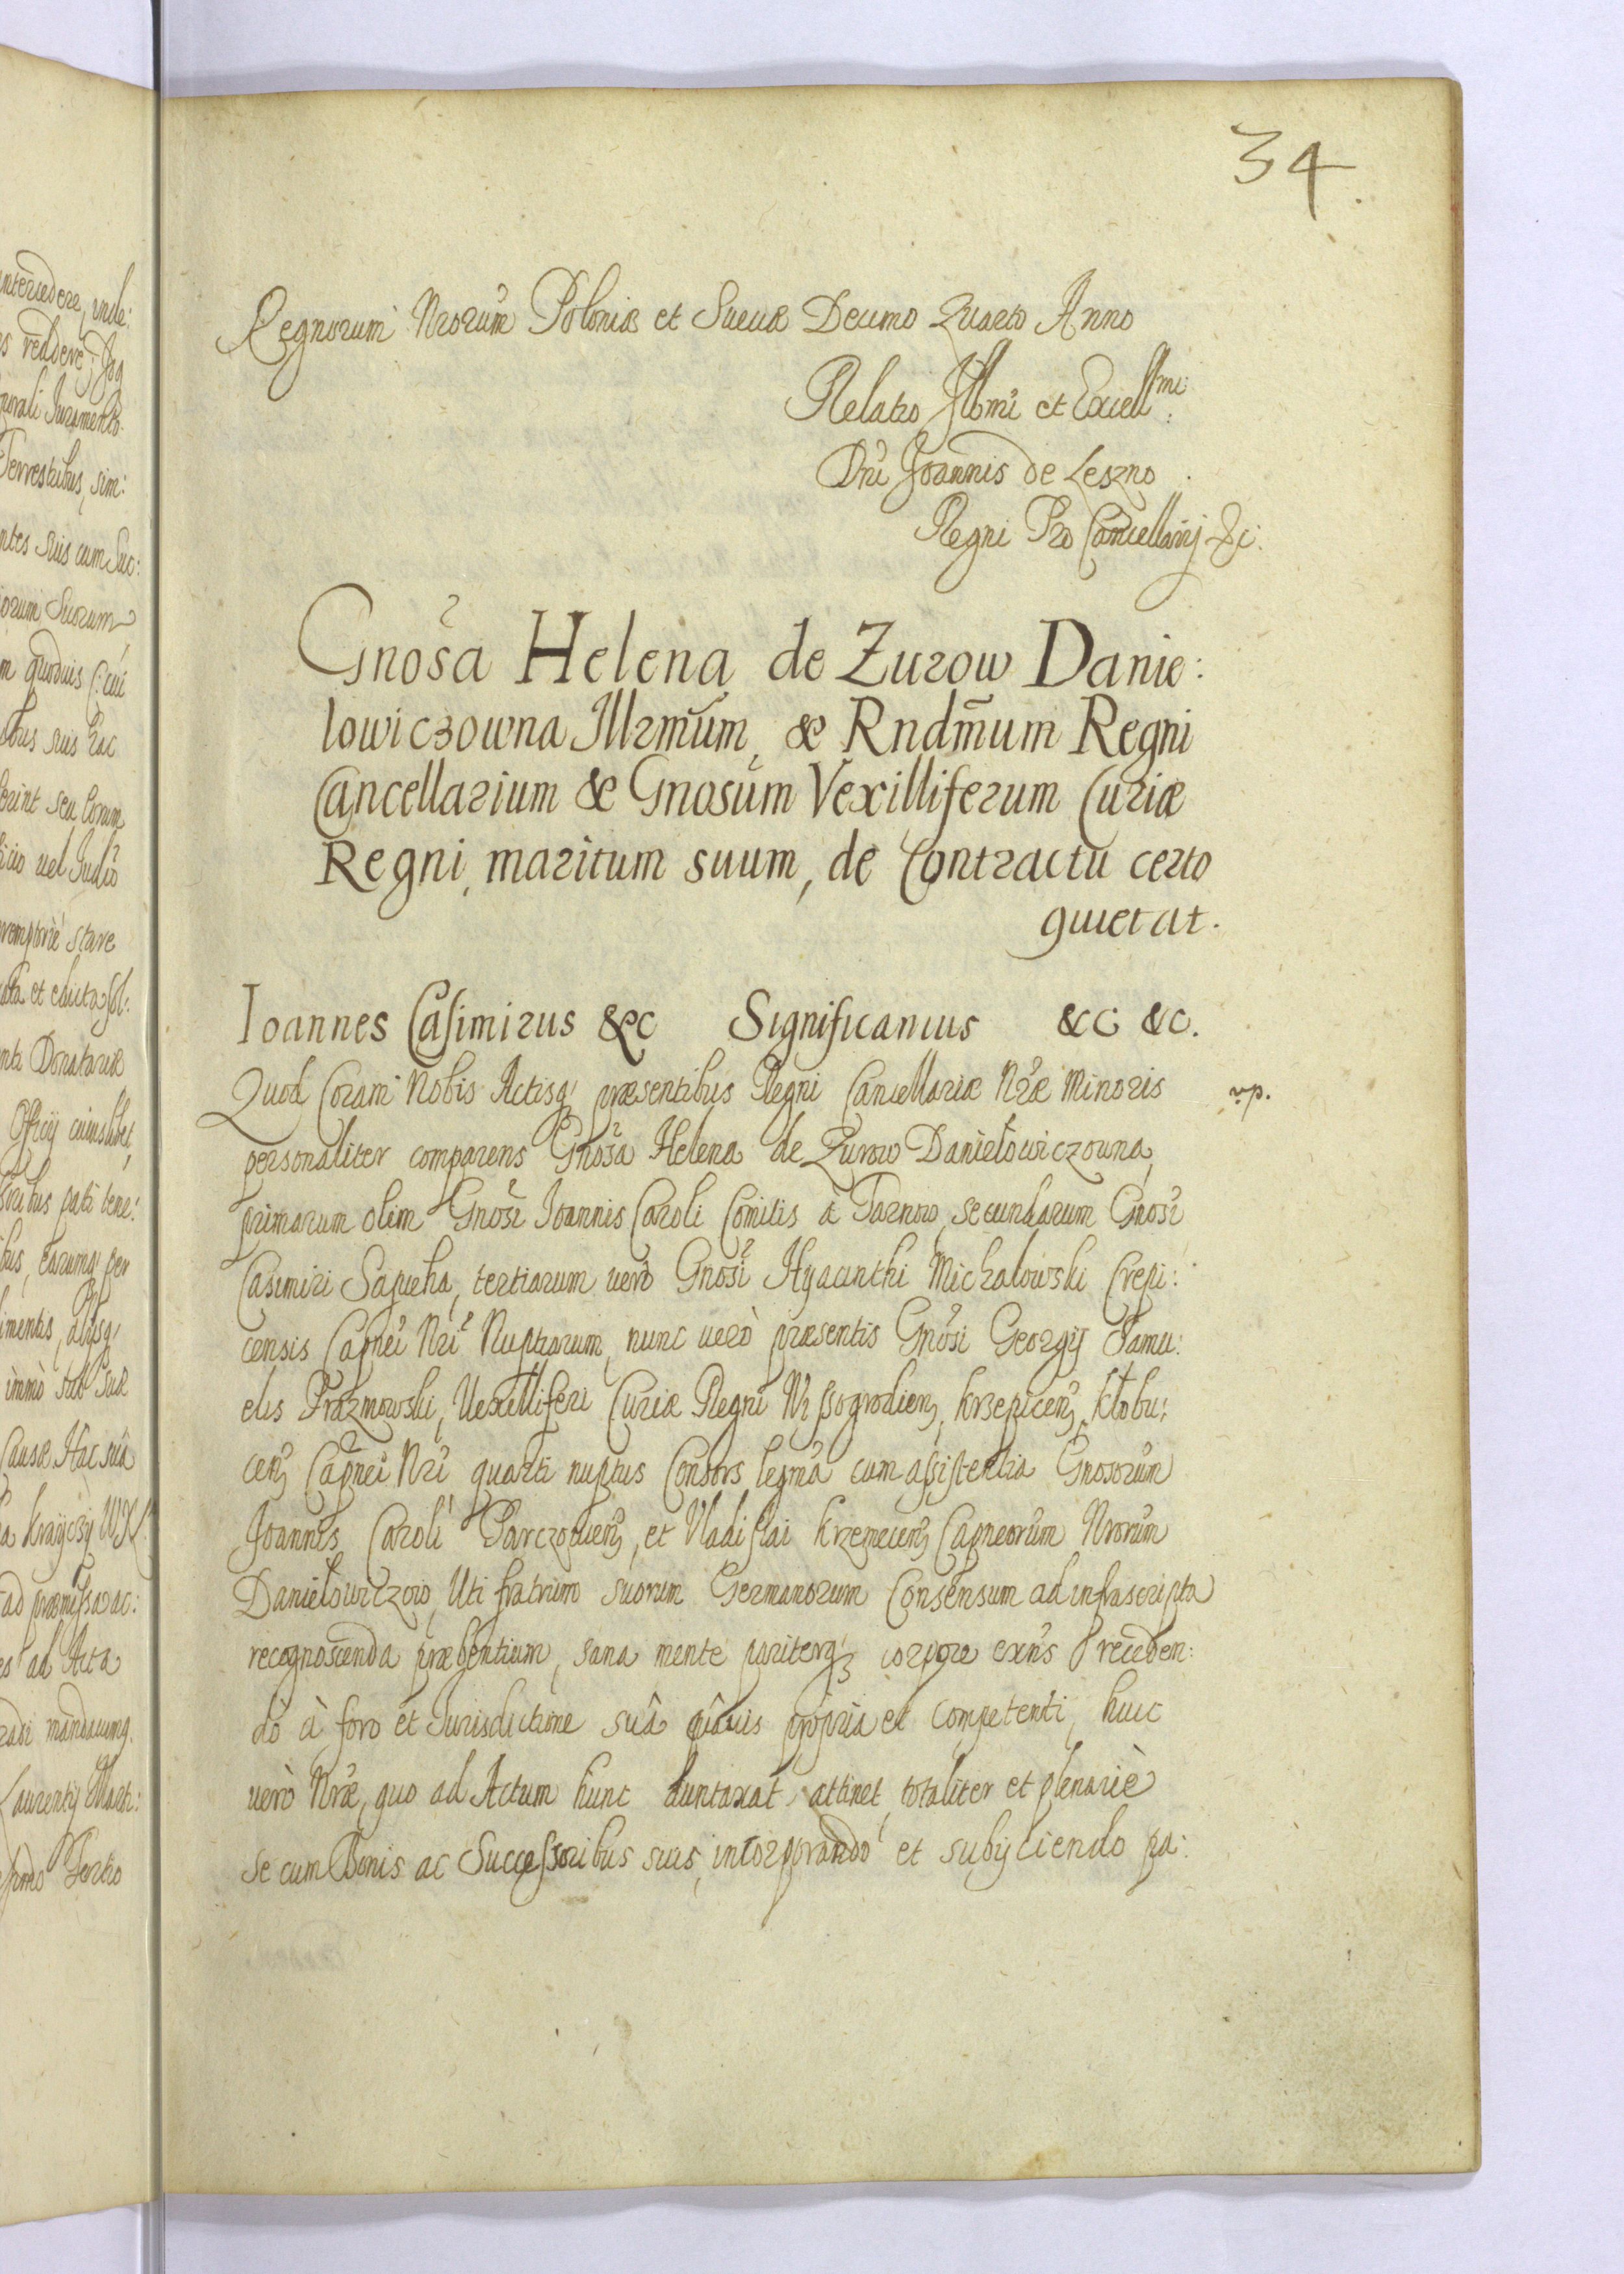 34.
Regnorum Nrorum Poloniæ et Sueciæ Decimo Quarto Anno
Relatio Illmi et Excellmi:
Dni Joannis de Leszno
Regni Pro Cancellarij &c:
Gnosa Helena de Zurow Danie:
lowiczowna Illrmum, & Rndmum Regni
Cancellarium & Gnosum Vexilliferum Curiæ
Regni, maritum suum, de Contractu certo
quietat.
Ioannes Casimirus &c Significamus &c &c.
Quod Coram Nobis Actisq præsentibus Regni Cancellariæ Nræ Minoris
personaliter comparens Gnosa Helena de Zurow Daniełowiczowna,
primarum olim Gnosi Joannis Caroli Comitis à Tarnow, secundarum Gnosi
Casimiri Sapieha, tertiarum verò Gnosi Hyacinthi Michałowski Crepi:
censis Capnei Nri Nuptiarum, nunc verò præsentis Gnosi Georgij Samu:
elis Prazmowski, Vexilliferi Curiæ Regni Wyssogrodien, krzepicen, kłobu:
cen Capnei Nri quarti nuptus Consors legma cum assistentia Gnosorum
Joannis Caroli Parczovien, et Vladislai krzemecen Capneorum Nrorum
Daniełowiczow, Uti fratrum suorum Germanorum Consensum ad infrascripta
recognoscenda præbentium, sana mente pariterq corpore exns recceden:
dò à foro et Jurisdictione suâ quavis propria et competenti, huic
verò Nræ, quo ad Actum hunc duntaxat attinet, totaliter et plenariè
se cum Bonis ac Successoribus suis, incorporando et subijciendo pa: